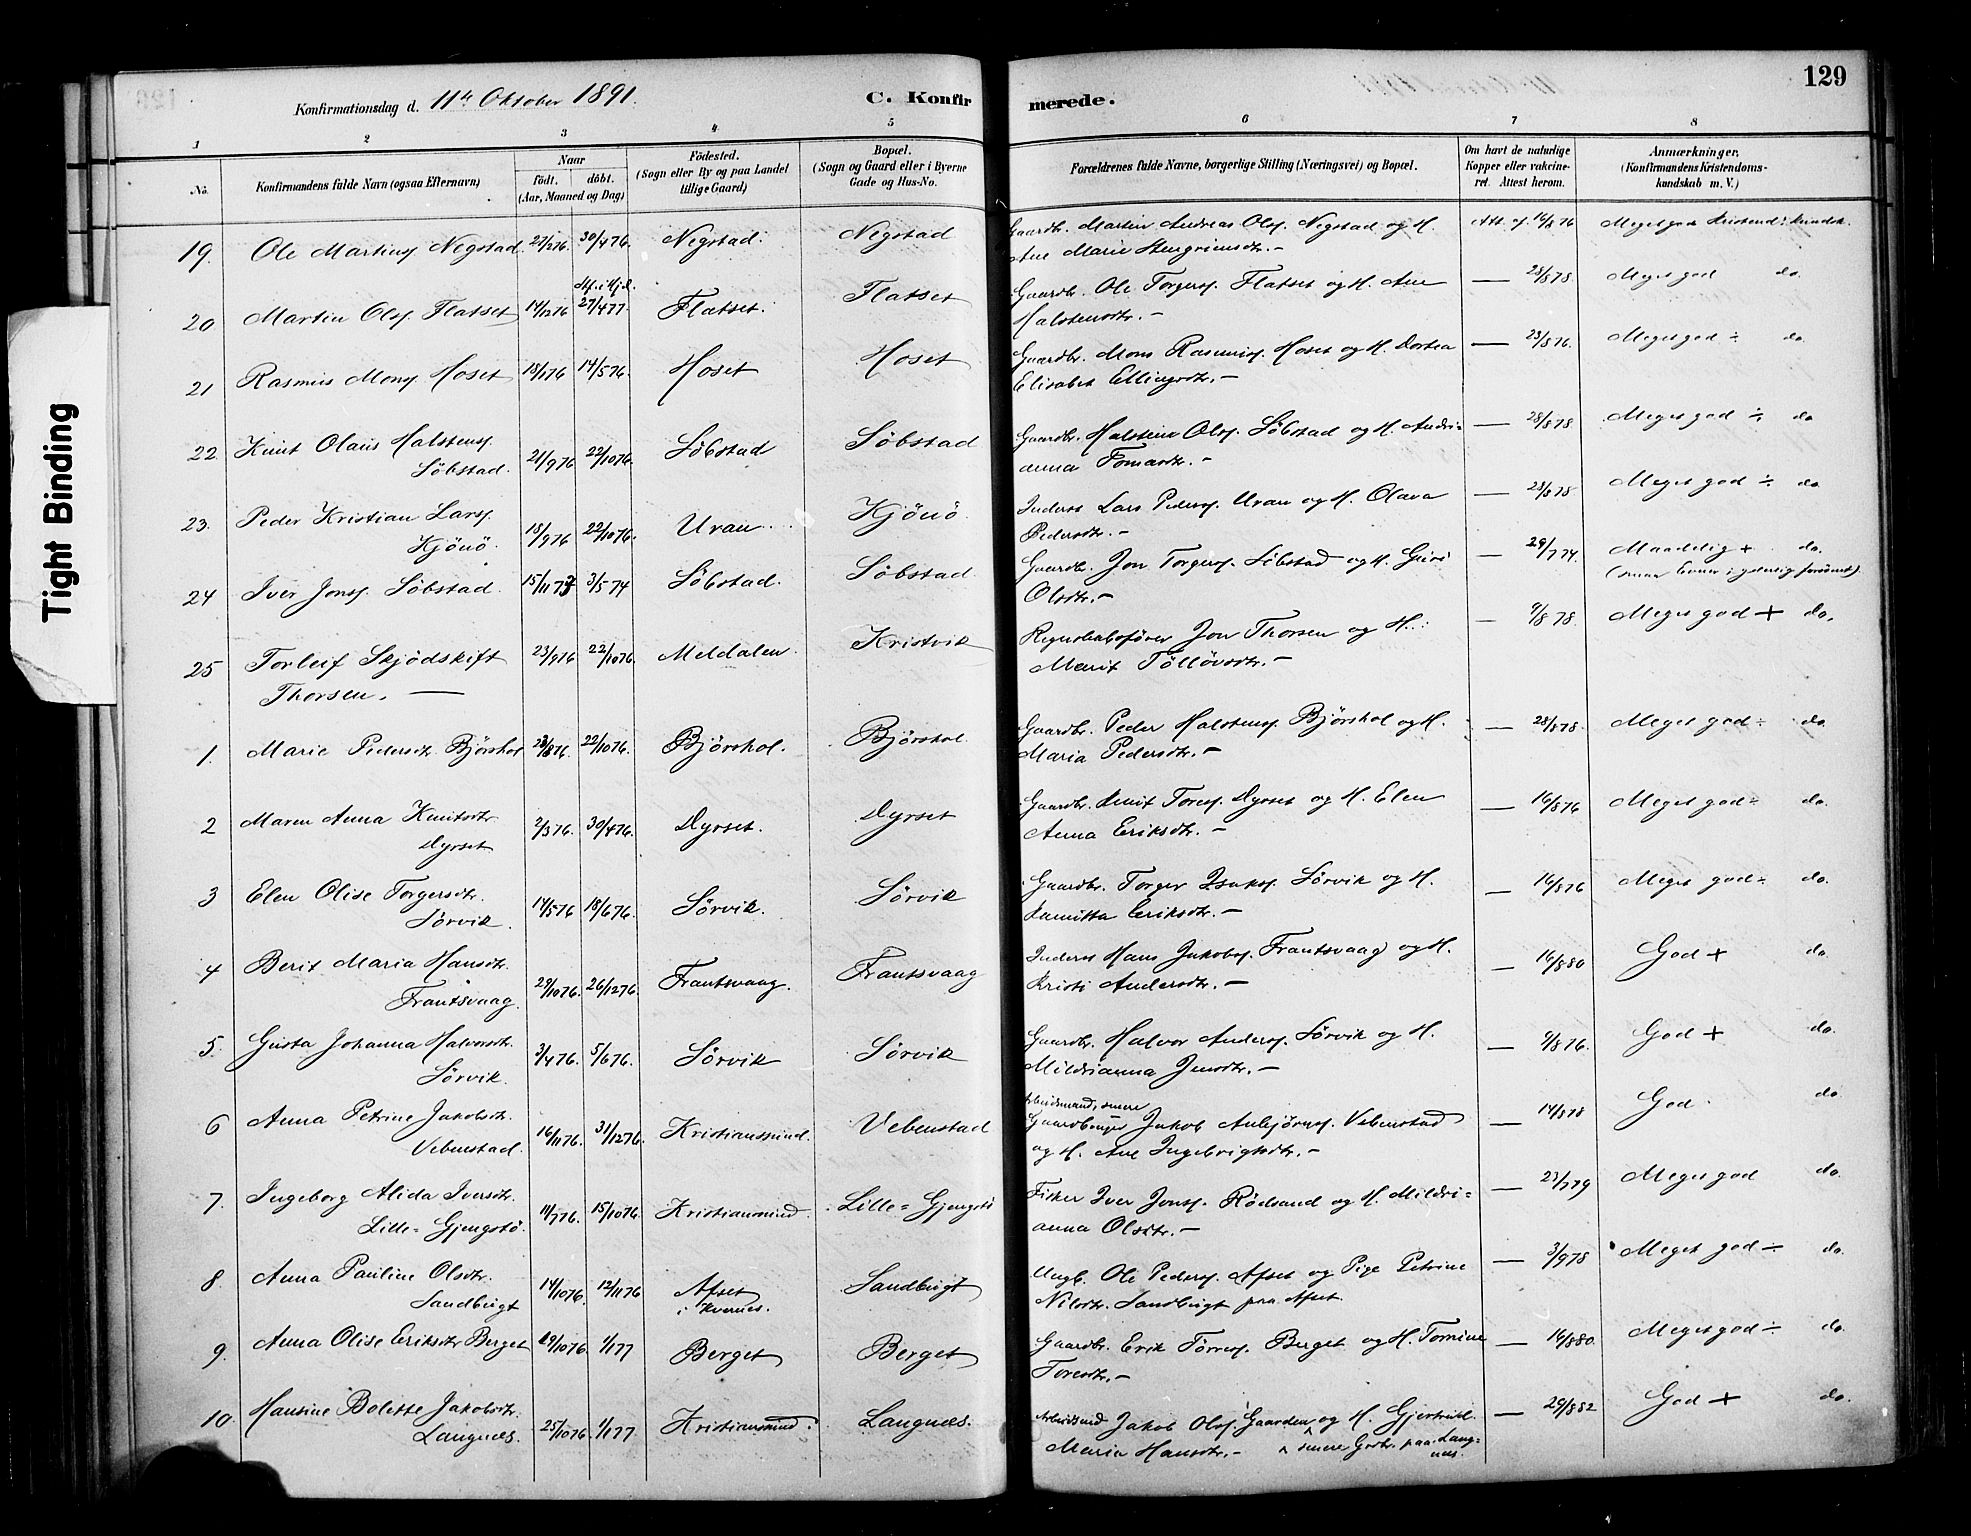 129
Konfirmationsdag d. 11te Oktober 1891.
C. Konfirmerede.
1 2 3 4 5 6 7 8
No.
Konfirmandens fulde Navn (ogsaa Efternavn)
Naar
födt. döbt.
(Aar, Maaned og Dag)
Födested.
(Sogn eller By og paa Landet
tillige Gaard)
Bopæl.
(Sogn og Gaard eller i Byerne
Gade og Hus-No.
Forældrenes fulde Navne, borgerlige Stilling (Næringsvei) og Bopæl.
Om havt de naturlige
Kopper eller vakcine-
ret. Attest herom.
Anmærkninger,
(Konfirmandens Kristendoms-
kundskab m. V.)
Tight Binding
19. Ole Martins. Negstad 30/4 76. Negstad. Negstad Gaardbr. Martin Andreas Ols. Negstad og H. Att. af 16/8 76 Meget god Kristend: kundsk.
Ane Marie Stengrimsdtr. –
20 Martin Ols. Flatset 14/12 76 27/4 77. Flatset. Flatset Gaardbr. Ole Torgers. Flatset og H. Ane — 28/8 78. Meget god do.
Halstensdtr. –
21 Rasmus Mons. Hoset 18/1 76 14/5 76. Hoset Hoset Gaardbr. Mons Rasmus. Hoset og H. Dortea — 23/8 76. Meget god ÷ do.
Elisabet Ellingsdtr. –
22. Knut Olaus Halstens. 21/9 76 22/10 76. Söbstad Söbstad Gaardbr. Halstein Ols. Söbstad og H. Andri= — 28/8 78 Meget god ÷ do
Söbstad. anna Tomasdtr. –
23. Peder Kristian Lars. 18/9 76 22/10 76. Uran Kjönö. Inderst Lars Peders. Uran og H. Olava — 28/8 78 Meget god ÷ do
Kjönö. Pedersdtr. –
24 Iver Jons. Söbstad. 15/11 73 3/5 74 Söbstad. Söbstad Gaardbr. Jon Torgers. Söbstad og H. Guri — 29/7 74. Maadelig + do.
Olsdtr. –
25 Torleif Skjödskift 23/9 76 22/10 76. Meldalen. Kristvik Regnskabsförer Jon Thorsen og H.: — 9/8 78. Meget god + do.
Thorsen. — Marit Töllövsdtr. –
1. Marie Pedersdtr. Björshol 28/8 76. 22/10 76. Björshol. Björshol. Gaardbr. Peder Halstens. Björshol og H. — 28/8 78. Meget god ÷ do.
Maria Pedersdtr. –
2 Maren Anna Knutsdtr. 2/3 76. 30/4 76. Dyrset. Dyrset Gaardbr. Knut Tores. Dyrset og H. Elen — 16/8 76 Meget god ÷ do.
Dyrset Anna Eriksdtr. –
3 Elen Olise Torgersdtr. 14/5 76 18/6 76. Sörvik. Sörvik Gaardbr. Torger Isaks. Sörvik og H. — 16/8 76 Meget god ÷ do.
Sörvik. Eriksdtr. –
4 Berit Maria Hansdtr. 29/10 76. 26/12 76. Frantsvaag. Frantsvaag Inderst Hans Jakobs. Frantsvaag og H. — 16/8 80 God + do.
Frantsvaag. Kristi Andersdtr. –
5. Gusta Johanna Halvorsdtr. 3/4 76. 5/6 76. Sörvik Sörvik Gaardbr. Halvor Anders. Sörvik og H. — 9/8 76. God + do.
Sörvik. Mildrianna Jensdtr. –
6 Anna Petrine Jakobsdtr. 16/11 76. 31/12 76. Kristianssund. Vebenstad Arbeidsmand, senere
Vebenstad. Gaardbruger Jakob Anbjörns. Vebenstad — 14/8 78 God do
og H. Ane Ingebrigtsdtr. –
7. Ingeborg Alida Iversdtr. 11/7 76. 15/10 76. Kristianssund. Lille= Gjengstö Fisker Iver Jons. Rödsand og H. Mildri= — 23/7 79 Meget god do.
Lille= Gjengstö. anna Olsdtr. –
8. Anna Pauline Olsdtr. 14/10 76. 12/11 76 Afset Sandbugt Ungk. Ole Peders. Afset og Pige Petrine — 3/9 78 Meget god ÷ do.
Sandbugt i Kvernes. Nilsdtr. Sandbugt paa Afset.
9. Anna Olise Eriksdtr. Berget 29/10 76. 1/1 77 Berget Berget Gaardbr. Erik Törres. Berget og H. Tomine — 16/8 80. Meget god ÷ do.
Toresdtr. –
10. Hansine Bolette Jakobsdtr. 25/10 76. 1/1 77 Kristianssund. Langnæs. Arbeidsmd Jakob Ols. Gaarden og H. Gjertrud — 29/8 82 God + do.
Langnæs. Maria Hansdtr. – ^ senere Grdbr. paa Lang=
næs.